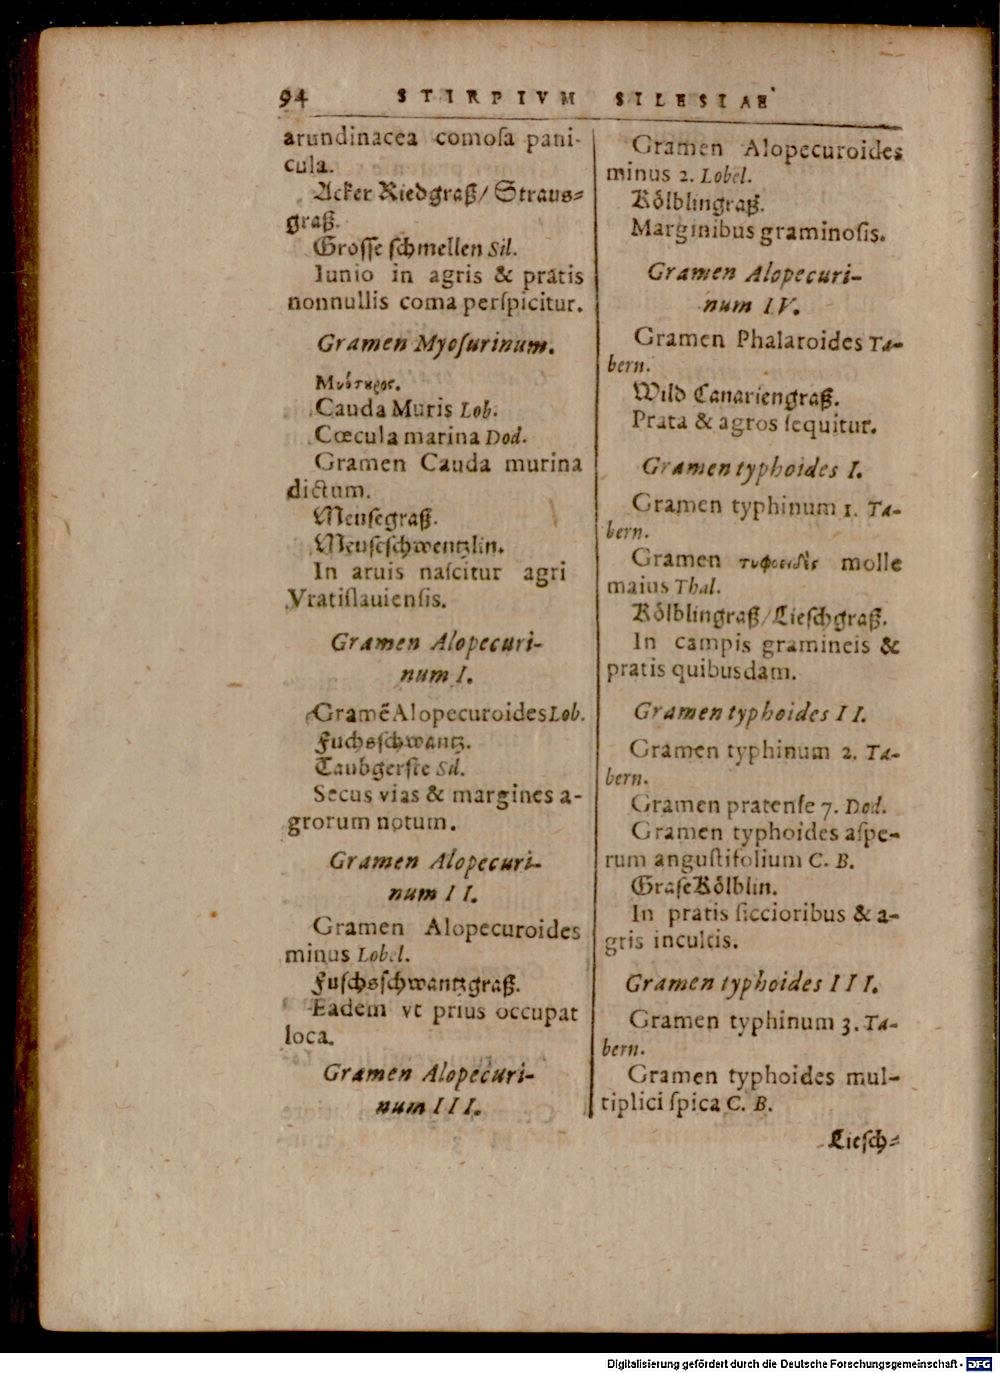 94 STIRPIVM SILESIAE
arundinacea comoſa pani-
cula.
Acker Riedgraß/ Straus-
graß.
Groſſe ſchmellen Sil.
Iunio in agris & pratis
nonnullis coma perſpicitur.
Gramen Myoſurinum.
Μυόσουρος.
Cauda Muris Lob.
Cœcula marina Dod.
Gramen Cauda murina
dictum.
Meuſegraß.
Meuſeſchwentzlin.
In aruis naſcitur agri
Vratiſlauienſis.
Gramen Alopecuri-
num I.
Gramẽ Alopecuroides Lob.
Fuchsſchwantz.
Taubgerſte Sil.
Secus vias & margines a-
grorum notum.
Gramen Alopecuri-
num II.
Gramen Alopecuroides
minus Lobel.
Fuſchsſchwantzgraß.
Eadem vt prius occupat
loca.
Gramen Alopecuri-
num III.
Gramen Alopecuroides
minus 2. Lobel.
Kölblingraß.
Marginibus graminoſis.
Gramen Alopecuri-
num IV.
Gramen Phalaroides Ta-
bern.
Wild Canariengraß.
Prata & agros ſequitur.
Gramen typhoides I.
Gramen typhinum 1. Ta-
bern.
Gramen τυφοειδὲς molle
maius Thal.
Kölblingraß/Lieſchgraß.
In campis gramineis &
pratis quibusdam.
Gramen typhoides II.
Gramen typhinum 2. Ta-
bern.
Gramen pratenſe 7. Dod.
Gramen typhoides aſpe-
rum anguſtifolium C. B.
GraſeKölblin.
In pratis ſiccioribus & a-
gris incultis.
Gramen typhoides III.
Gramen typhinum 3. Ta-
bern.
Gramen typhoides mul-
tiplici ſpica C. B.
Lieſch-
Digitalisierung gefördert durch die Deutsche Forschungsgemeinschaft - DFG